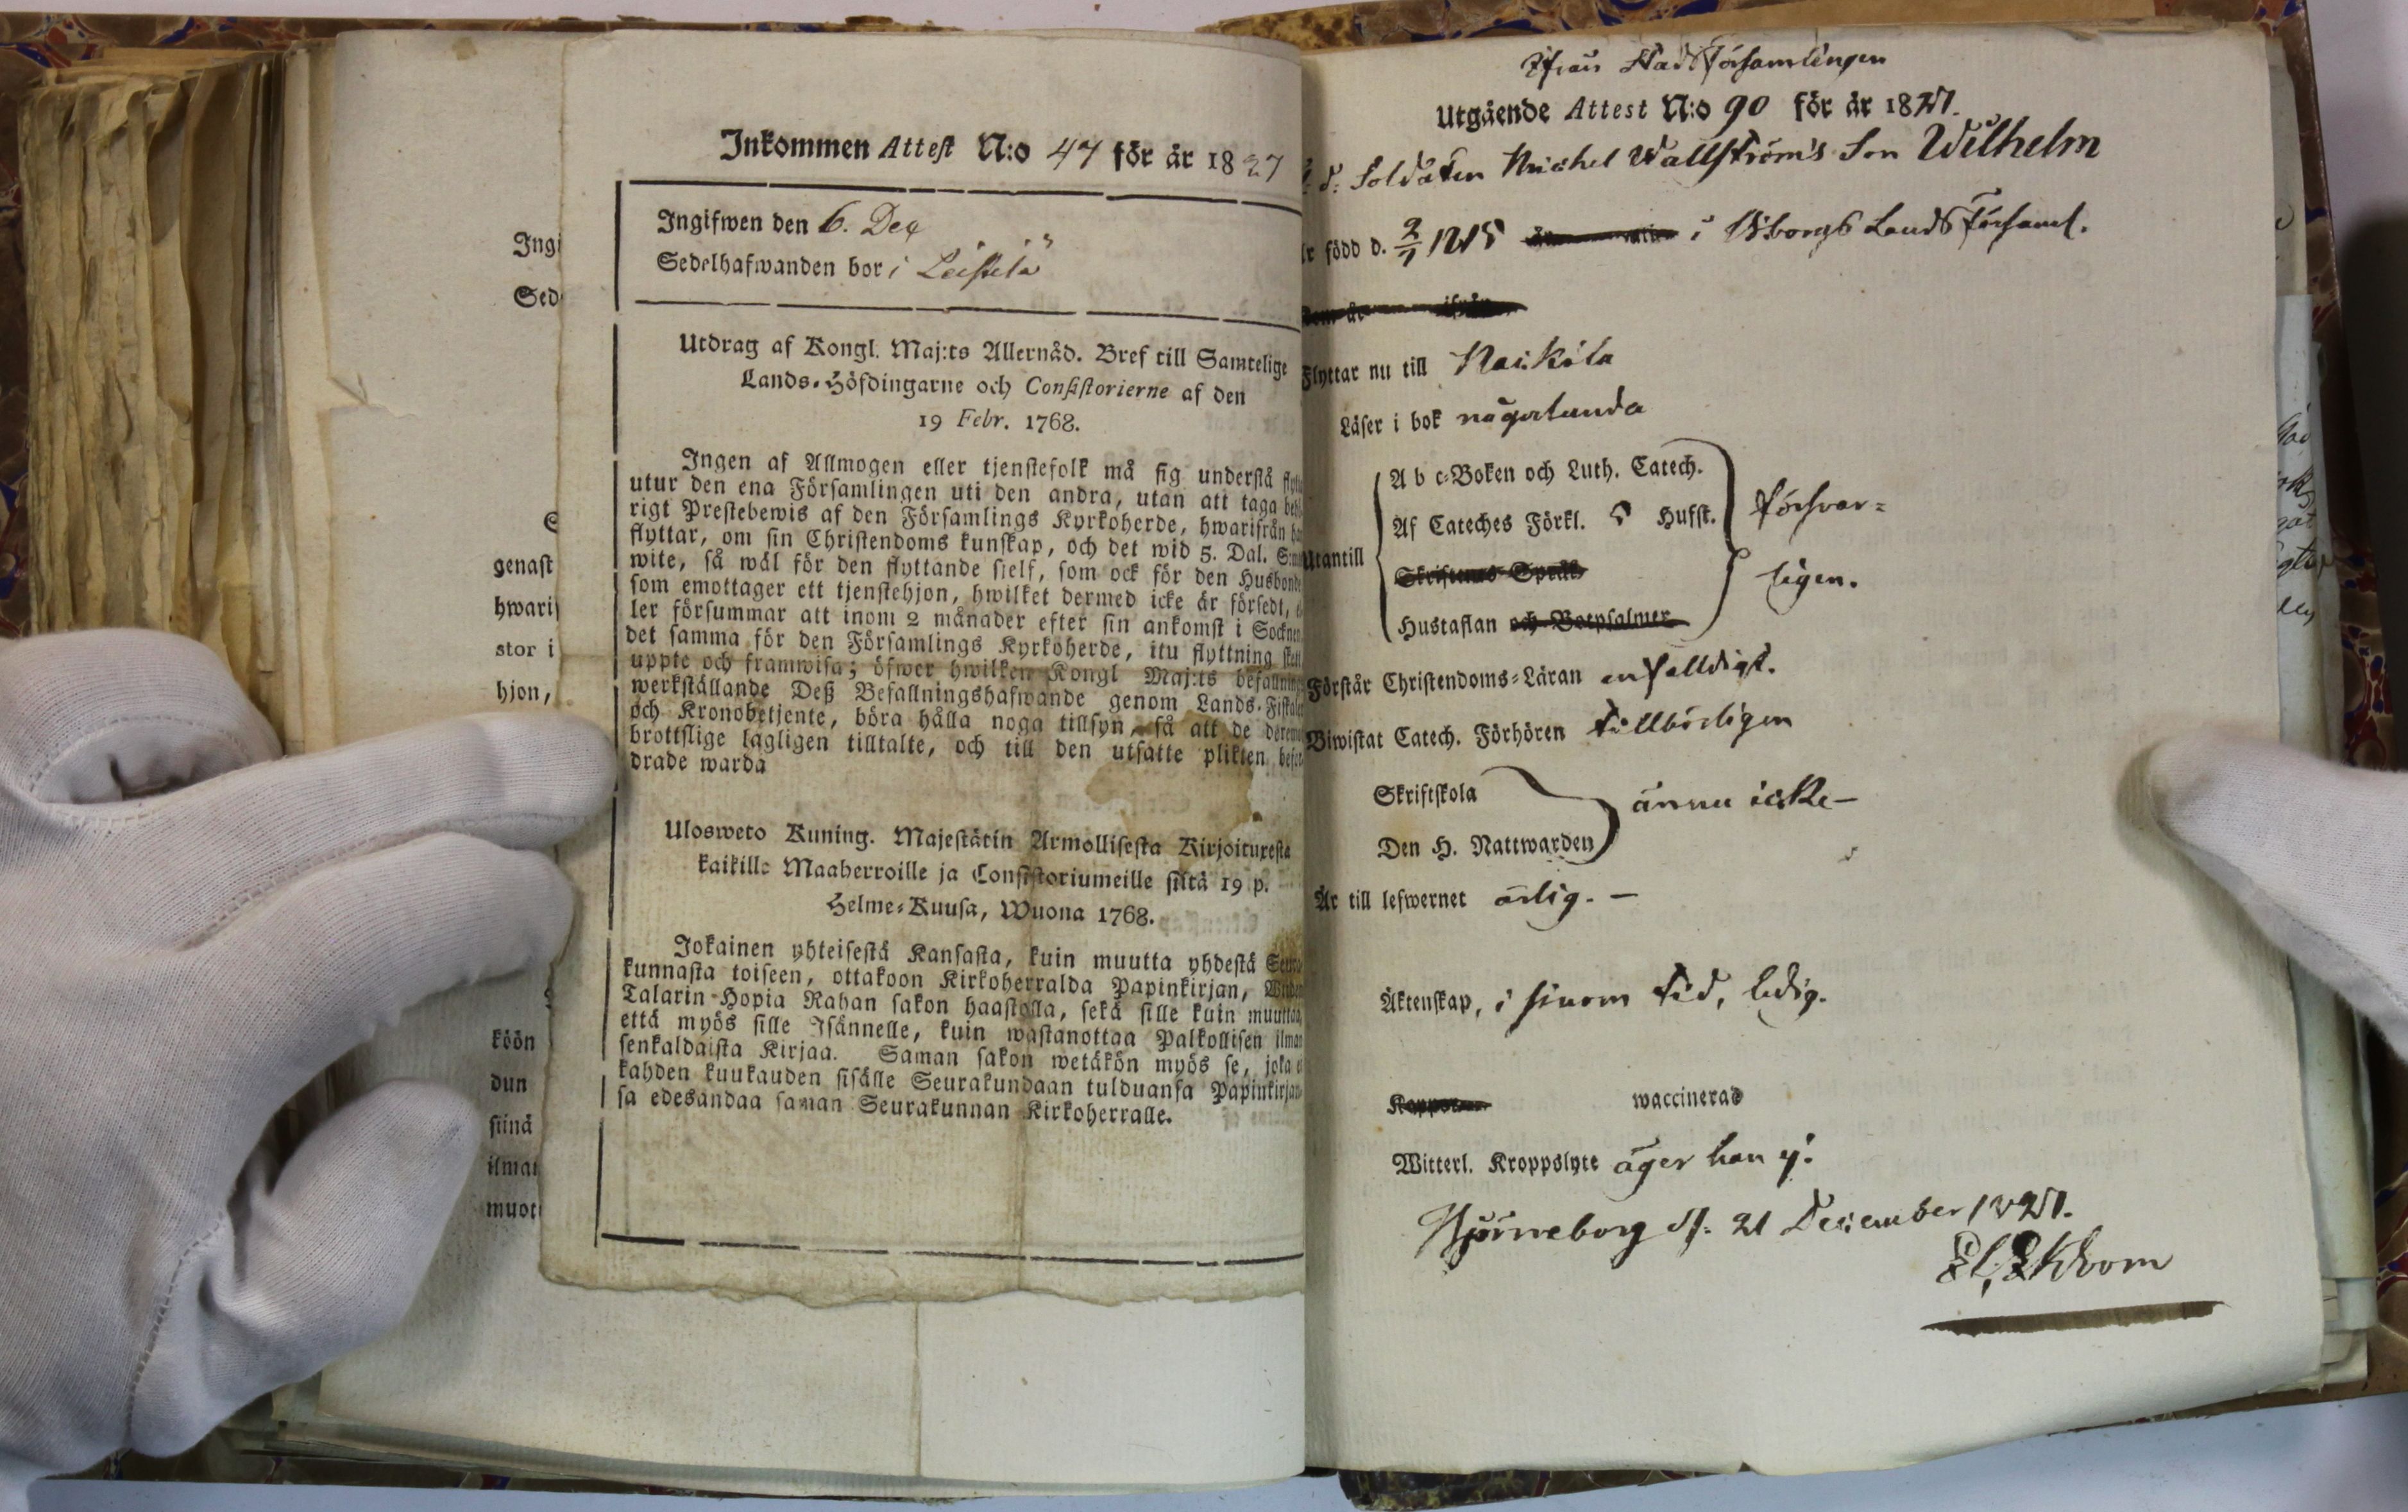 Ingi
Sed
genast
hwari
stor i
hjon,
köön
dun
stinä
ilma
muot
Inkommen Attest N:o 47 för år 1827
Ingifwen den 6. Dec
Sedelhafwanden bor i
Utdrag af Kongl. Maj:ts Allernåd. Bref till Samtelige
Lands-Höfdingarne och Consistorierne af den
19 Febr. 1768.
Ingen af Allmogen eller tjenstefolk må sig understå
utur den ena Församlingen uti den andra, utan att taga
rigt Prestebewis af den Församlings Kyrkoherde, hwarifrån
flyttar, om sin Christendoms kunskap, och det wid 5. Dal.
wite, så wäl för den flyttande sjelf, som ock för den Husbonde
som emottager ett tjenstehjon, hwilket dermed icke är försedt,
ler försummar att inom 2 månader efter sin ankomst i Socknen
det samma för den Församlings Kyrkoherde, itu flyttning
uppte och framwisa; öfwer hwilken Kongl Maj:ts befallning
werkställande Deß Befallningshafwande genom Lands-Fiskaler
och Kronobetjente, böra hålla noga tillsyn, så att de
brottslige lagligen tilltalte, och till den utsatte plikten
drade warda
Ulosweto Kuning. Majestätin Armollisesta Kirjoituxesta
kaikille Maaherroille ja Consistoriumeille siitä 19 p.
Helme-Kuusa, Wuona 1768.
Jokainen yhteisestä Kansasta, kuin muutta yhdestä Seura
kunnasta toiseen, ottakoon Kirkoherralda Papinkirjan,
Talarin Hopia Rahan sakon haastolla, sekä sille kuin muuttaa,
että myös sille Isännelle, kuin wastanottaa Palkollisen ilman
senkaldaista Kirjaa. Saman sakon wetäkön myös se, joka ei
kahden kuukauden sisälle Seurakundaan tulduansa Papinkirjan
sa edesandaa saman Seurakunnan Kirkoherralle.
Ifrån Stads Församlingen
Utgående Attest N:o 90 för år 1827.
d: Soldaten Michel Wallströms Son Wilhelm
född d. 2/7 1815 i Wiborgs Lands Församl.
Flyttar nu till
Läser i bok någorlunda
Utantill
A b c-Boken och Luth. Catech.
Af Cateches Förkl. 5 Hufst.
Skriftenes Språk
Hustaflan och Botpsalmer
försvar=
ligen.
Förstår Christendoms-Läran enfalldigt.
Biwistat Catech. Förhören tillbörligen
Skriftskola
Den H. Nattwarden
ännu icke—
Är till lefwernet ärlig. —
Äktenskap, i sinom tid, ledig.
waccinerad
Witterl. Kroppslyte äger han ej.
Björneborg d. 21 December 1827.